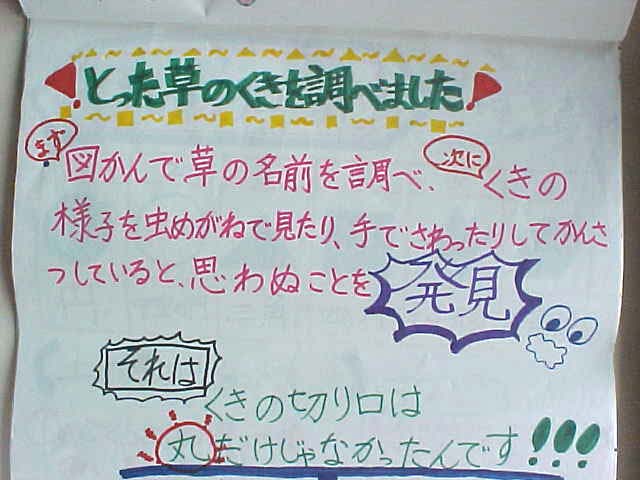 とった草のくきを調べました
まず図かんで草の名前を調べ、次にくきの
様子を虫めがねで見たり、手でさわったりしてかんさ
つしていると、思わぬことを発見
それは
くきの切り口は
丸だけじゃなかったんです!!!